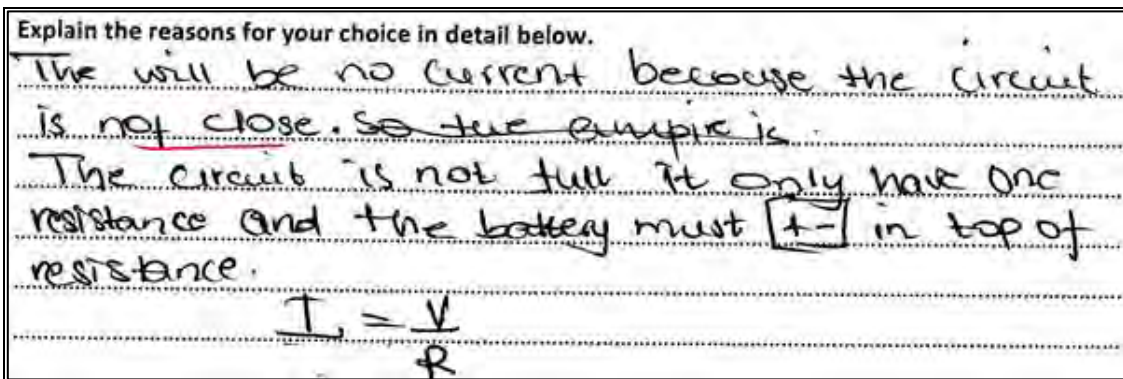 Explain the reasons for your choice in detail below.
The will be no current because the circuit
is not close. So the ampire is
The circuit is not full it only have one
resistance and the battery must [+-] in top of
resistance.
I = V
R